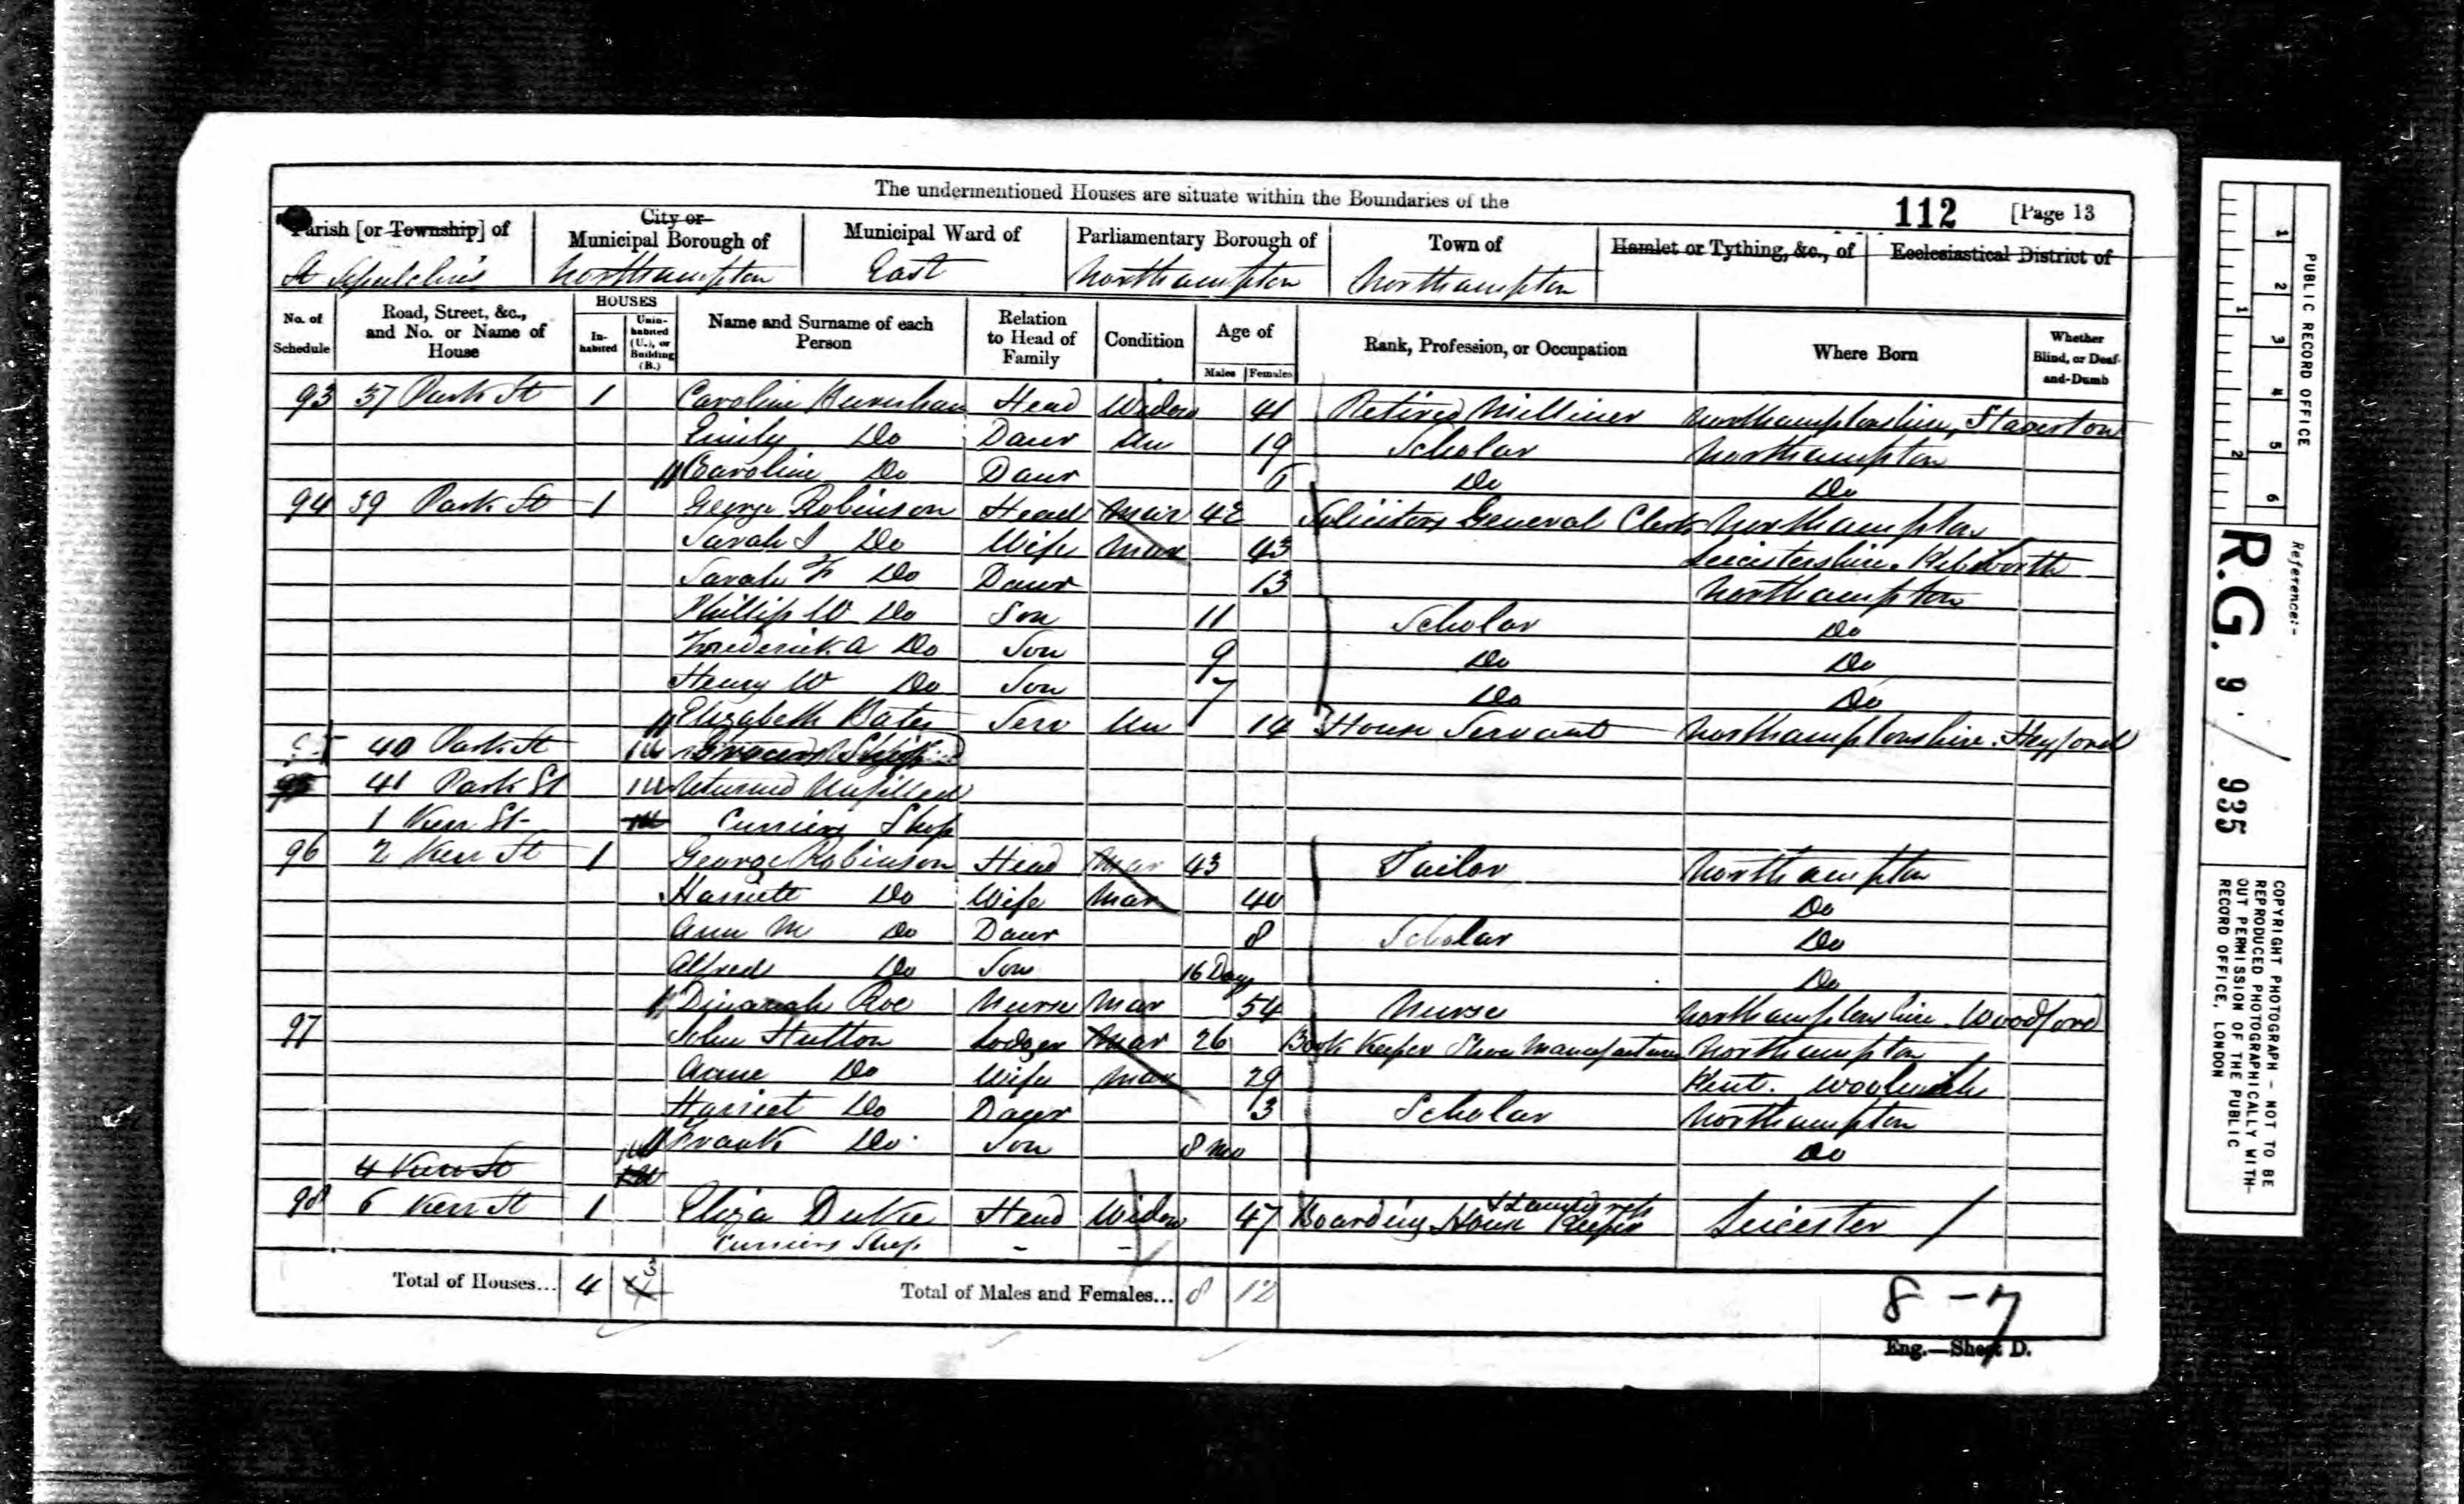 The undermentioned Houses are situate within the Boundaries of the
112 [Page 13
Parish [or Township] of
City or Municipal Borough of
Municipal Ward of
Parliamentary Borough of
Town of
Hamlet or Tything, &c., of
Ecclesiastical District of
St Sepulchres Northampton East Northampton Northampton
No. of Schedule
Road, Street, &c., and No. or Name of House
HOUSES
In-habited
Unin-habited (U.), or Building (B.)
Name and Surname of each Person
Relation to Head of Family
Condition
Age of
Males Females
Rank, Profession, or Occupation
Where Born
Whether Blind, or Deaf-and-Dumb
93 37 Park St 1 Caroline Head Widow 41 Retired Milliner Northamptonshire, Staverton
Emily Do Daur Un 19 Scholar Northampton
Caroline Do Daur 6 Do Do
94 39 Park St 1 George Robinson Head Mar 42 Solicitors General Clerk Northampton
Sarah J Do Wife Mar 43 Leicestershire. Kibworth
Sarah F Do Daur 13 Northampton
Phillip W Do Son 11 Scholar Do
Frederick A Do Son 9 Do Do
Henry W Do Son 7 Do Do
Elizabeth Bates Serv Un 14 House Servant Northamptonshire. Heyford
95 40 Park St 1U
41 Park St 1U Returned Unfilled
1 Kerr St Curriers Shop
96 2 Kerr St 1 George Robinson Head Mar 43 Tailor Northampton
Harriett Do Wife Mar 40 Do
Ann M Do Daur 8 Scholar Do
Alfred Do Son 16 Days Do
Roe Nurse Mar 54 Nurse Northamptonshire. Woodford
97 John Hutton Lodger Mar 26 Book Keeper Shoe Manufacturer Northampton
Anne Do Wife Mar 29 Kent. Woolwich
Harriet Do Daur 3 Scholar Northampton
Frank Do Son 8 Mo Do
4 Kerr St
98 6 Kerr St 1 Eliza Duke Head Widow 47 Laundress Boarding House Keeper Leicester
Curriers Shop - -
Total of Houses... 4 3 Total of Males and Females... 8 12
8 - 7
Eng.—Sheet D.
PUBLIC RECORD OFFICE
1 2 3 4 5 6
1 2
Reference:-
R.G. 9 / 935
COPYRIGHT PHOTOGRAPH - NOT TO BE
REPRODUCED PHOTOGRAPHICALLY WITH-
OUT PERMISSION OF THE PUBLIC
RECORD OFFICE, LONDON